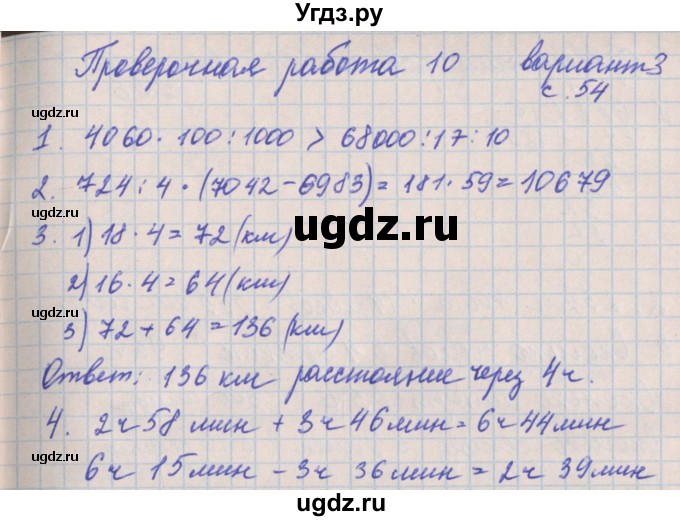 Угдз.ру
Проверочная работа 10 вариант 3
с. 54
ugdz.ru
1. 4060 · 100 : 1000 > 68000 : 17 : 10
ugdz.ru
2. 724 : 4 · (7042 - 6983) = 181 · 59 = 10679
ugdz.ru
3. 1) 18 · 4 = 72 (км)
ugdz.ru
2) 16 · 4 = 64 (км)
ugdz.ru
3) 72 + 64 = 136 (км)
Ответ: 136 км расстояние через 4 ч.
ugdz.ru
4. 2 ч 58 мин + 3 ч 46 мин = 6 ч 44 мин
ugdz.ru
6 ч 15 мин - 3 ч 36 мин = 2 ч 39 мин
ugdz.ru